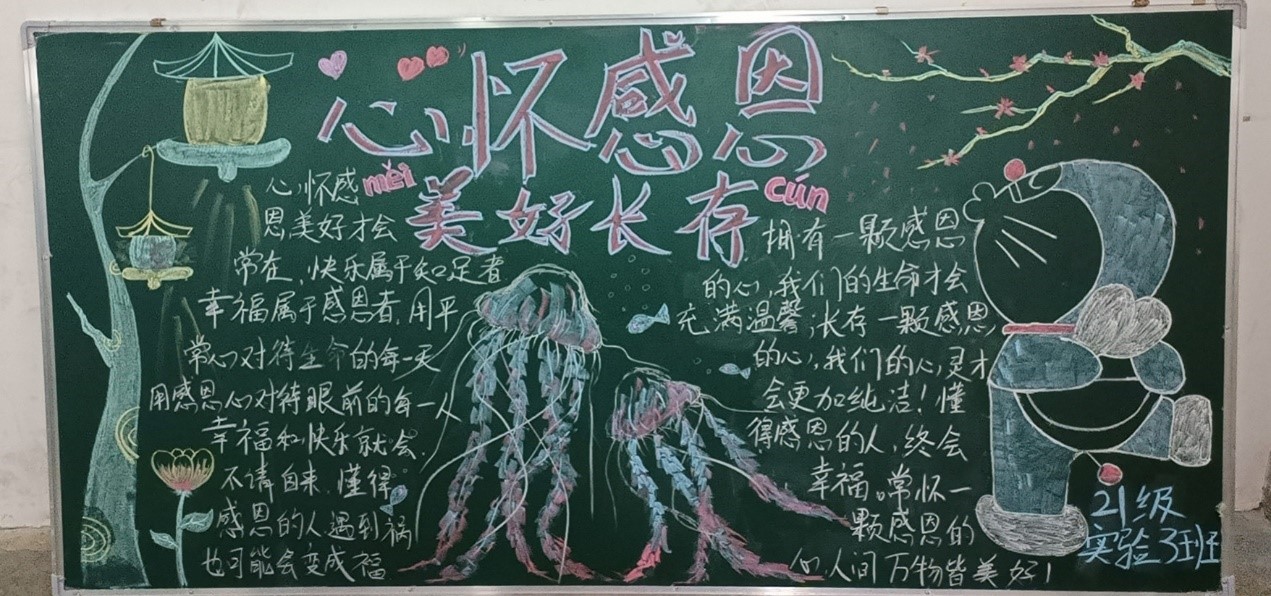 心怀感恩
měi 美好长存 cún
心怀感
恩美好才会
常在,快乐属于知足者
幸福属于感恩者,用平
常心对待生命的每一天
用感恩心对待眼前的每一人
幸福和快乐就会
不请自来,懂得
感恩的人遇到祸
也可能会变成福
拥有一颗感恩
的心,我们的生命才会
充满温馨;长存一颗感恩
的心,我们的心灵才
会更加纯洁!懂
得感恩的人,终会
幸福。常怀一
颗感恩的
心,人间万物皆美好!
21级
实验3班